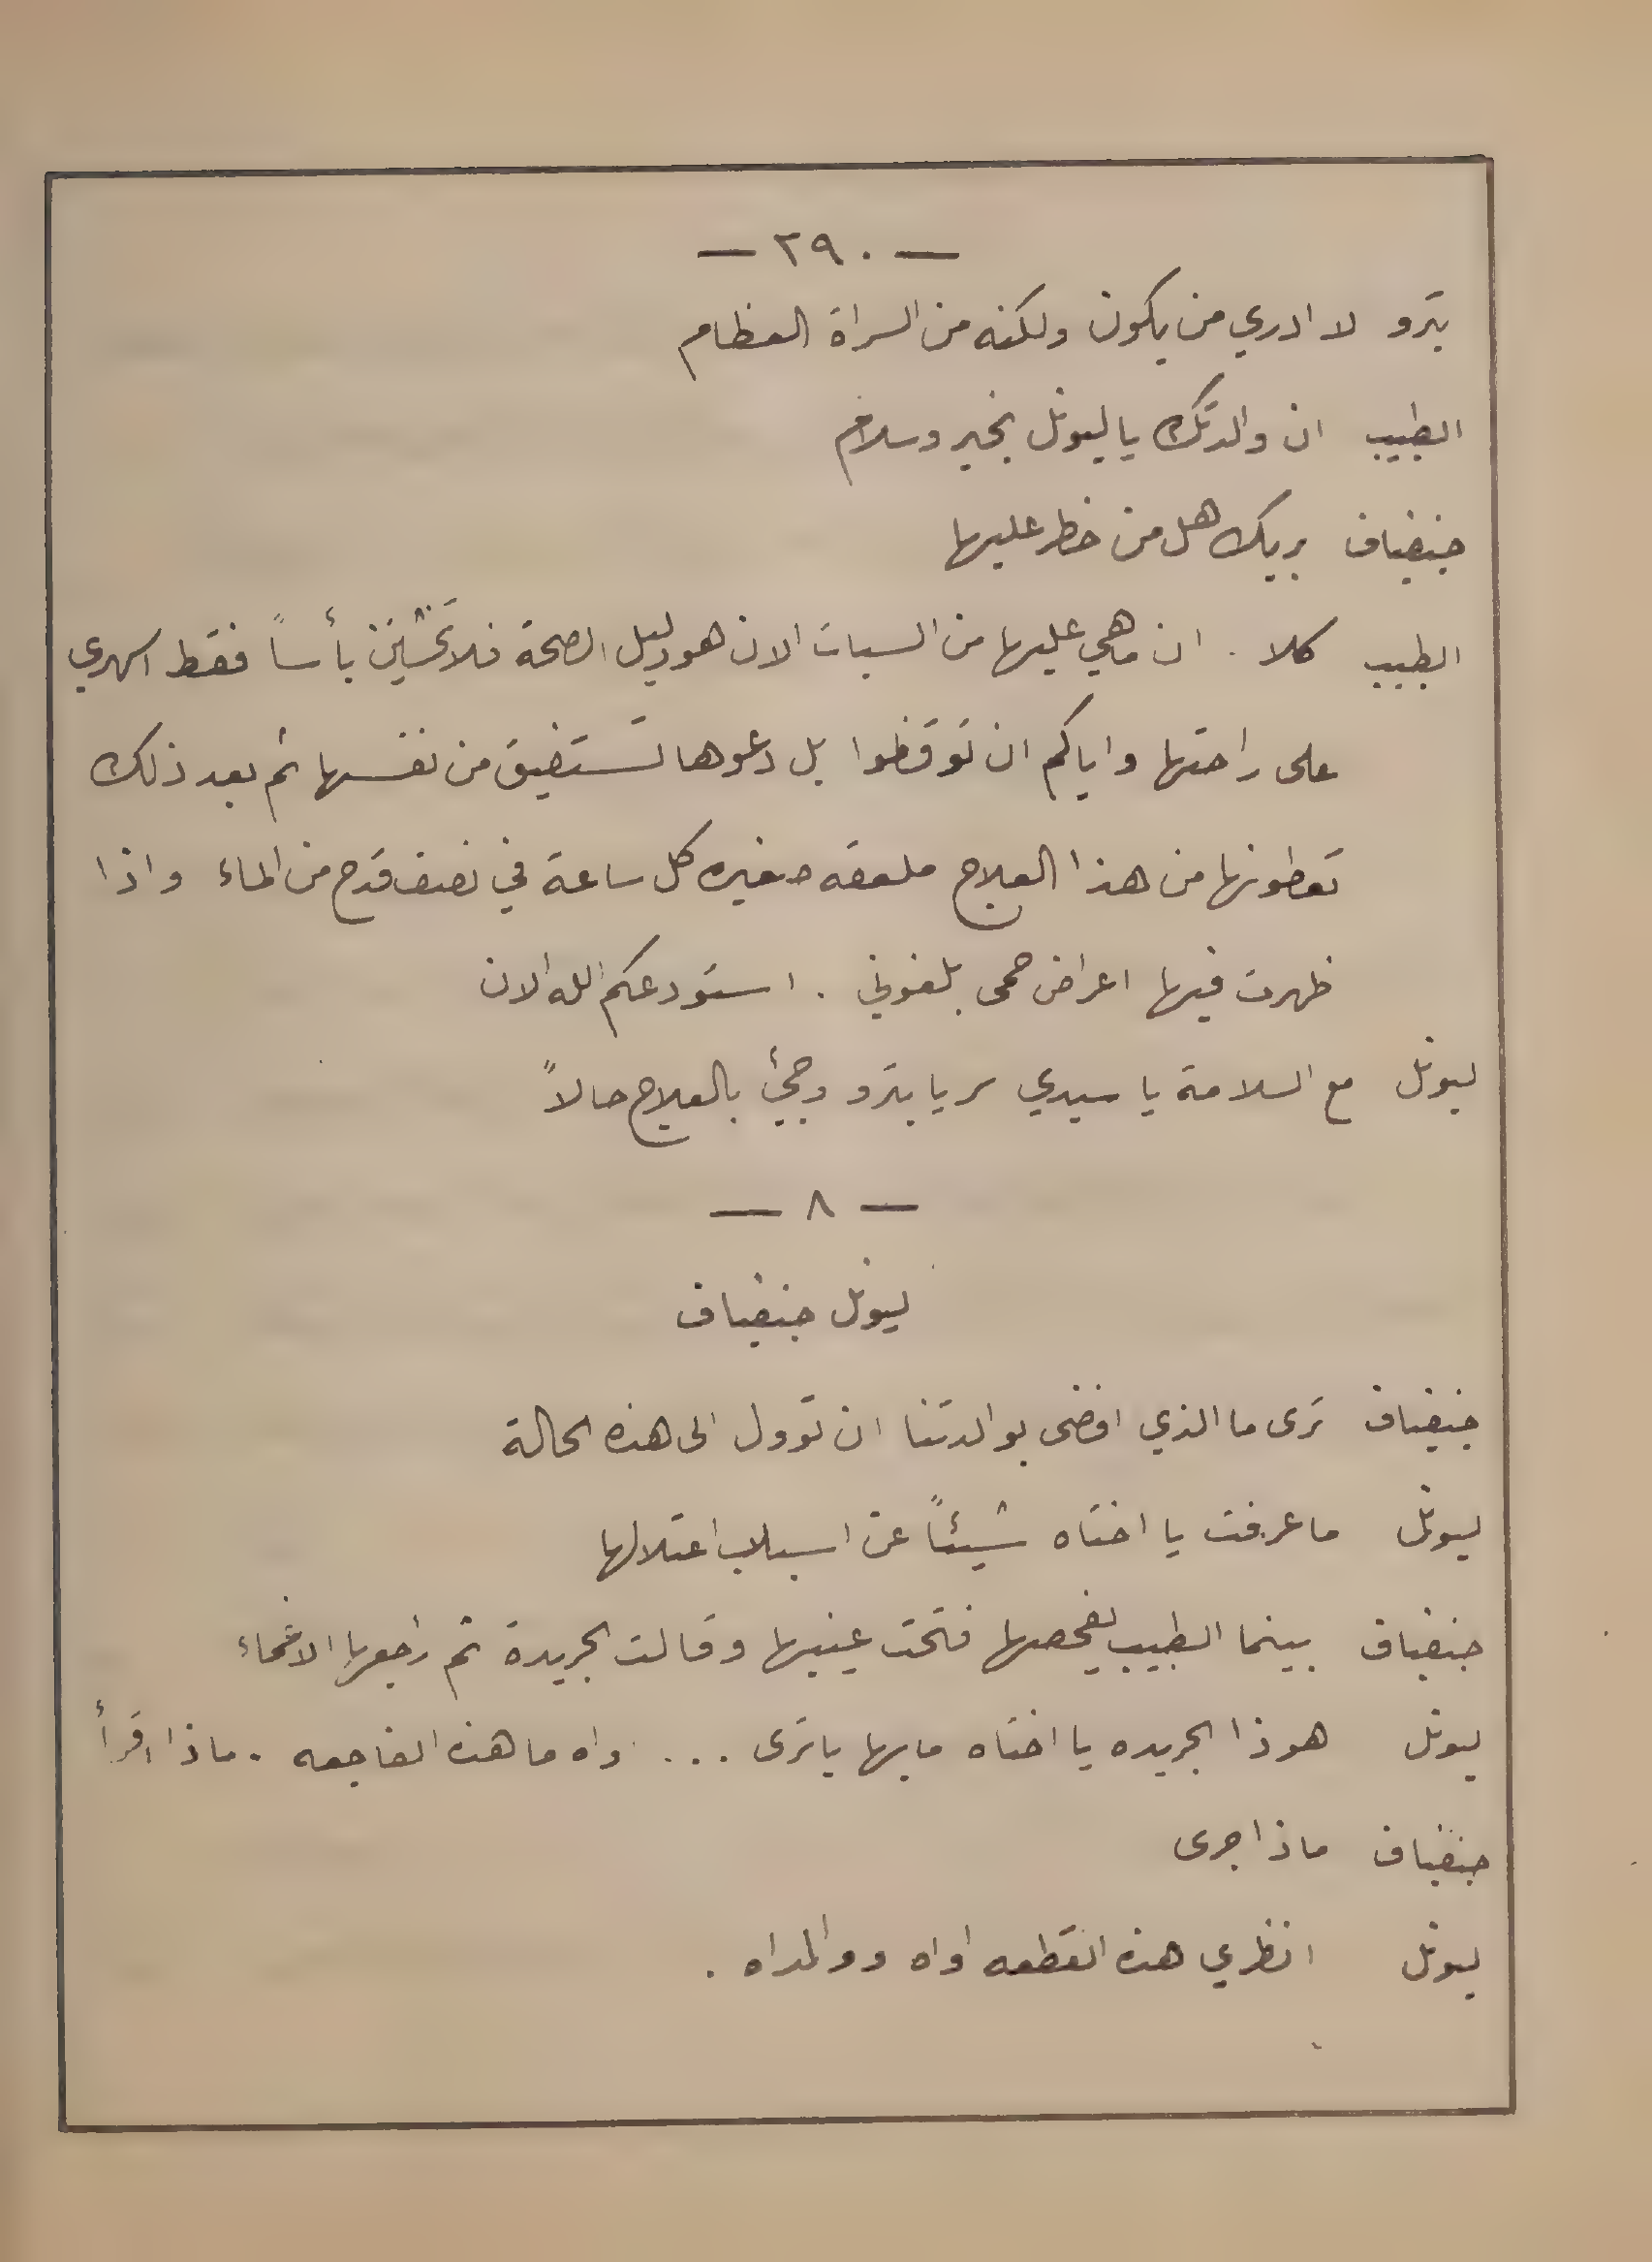 — ٢٩٠ —
بترو لا ادري من يكون ولكنه من السراة العظام
الطبيب ان والدتك يا ليونل بخير وسلام
جنفياف بربك هل من خطر عليها
الطبيب كلا . ان ما هي عليها من السبات الان هو دليل الصحة فلا تخشين بأساً فقط اسهري
على راحتها واياكم ان توقظوا بل دعوها تستفيق من نفسها ثم بعد ذلك
تعطونها من هذا العلاج ملعقه صغيره كل ساعة في نصف قدح من الماء واذا
ظهرت فيها اعراض حمى بلغوني . استودعكم الله الان
ليونل مع السلامة يا سيدي سر يا بترو وجئ بالعلاج حالاً
— ٨ —
ليونل جنفياف
جنفياف ترى ما الذي افضى بوالدتنا ان توول الى هذه الحالة
ليونل ما عرفت يا اختاه شيئاً عن اسباب اعتلالها
جنفياف بينما الطبيب يفحصها فتحت عينيها وقالت الجريدة ثم راجعها الاغماء
ليونل هوذا الجريده يا اختاه ما بها يا ترى ... واه ما هذه الفاجعه . ماذا اقرأ
جنفياف ماذا جرى
ليونل انظري هذه القطعه اواه ووالداه .